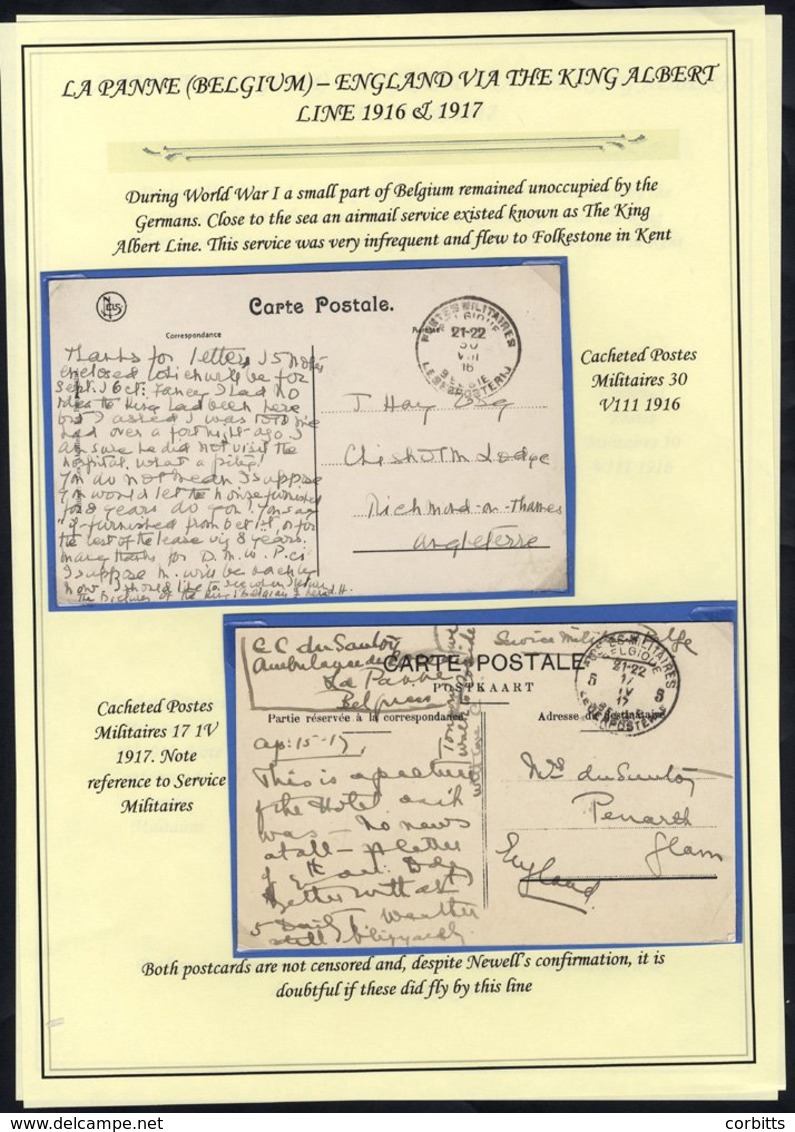 LA PANNE (BELGIUM) – ENGLAND VIA THE KING ALBERT
LINE 1916 & 1917
During World War I a small part of Belgium remained unoccupied by the
Germans. Close to the sea an airmail service existed known as The King
Albert Line. This service was very infrequent and flew to Folkestone in Kent
Carte Postale.
Correspondance
POSTES MILITAIRES
BELGIQUE
21-22
30
VIII
16
BELGIE
LEGERPOSTERIJ
Thanks for letter & 5 notes
enclosed which will be for
Sept. & Oct: Fancy I had no
idea the King had been here
but I asked & was told
had over a fortnight ago. I
am sure he did not visit the
hospital. What a pity!
You do not mean I suppose
you would let the house furnished
for 8 years do you? You say
"if furnished from Oct 1st, or for
the rest of the lease viz 8 years.
Many thanks for D.M. & P.C.
I suppose M. will be back
now. I should like to see
The Pictures of the King
J Hay Esq
Chisholm Lodge
Richmond-on-Thames
Angleterre
Cacheted Postes
Militaires 30
V111 1916
E C du Sautoy
Ambulance de
La Panne
Belgium
Service Militaire Belge
CARTE POSTALE
POSTKAART
Partie réservée à la correspondance
Adresse du destinataire
POSTES MILITAIRES
BELGIQUE
21-22
5 17 5
IV
17
BELGIE
LEGERPOSTERIJ
Ap: 15-17
This is a picture
of the Hotel as it
was – No news
at all – a letter
of
better
5 Daily Weather
still blizzardy
Mrs. du Sautoy
Penarth
Glam
England
Cacheted Postes
Militaires 17 1V
1917. Note
reference to Service
Militaires
Both postcards are not censored and, despite Newell's confirmation, it is
doubtful if these did fly by this line
corbitts